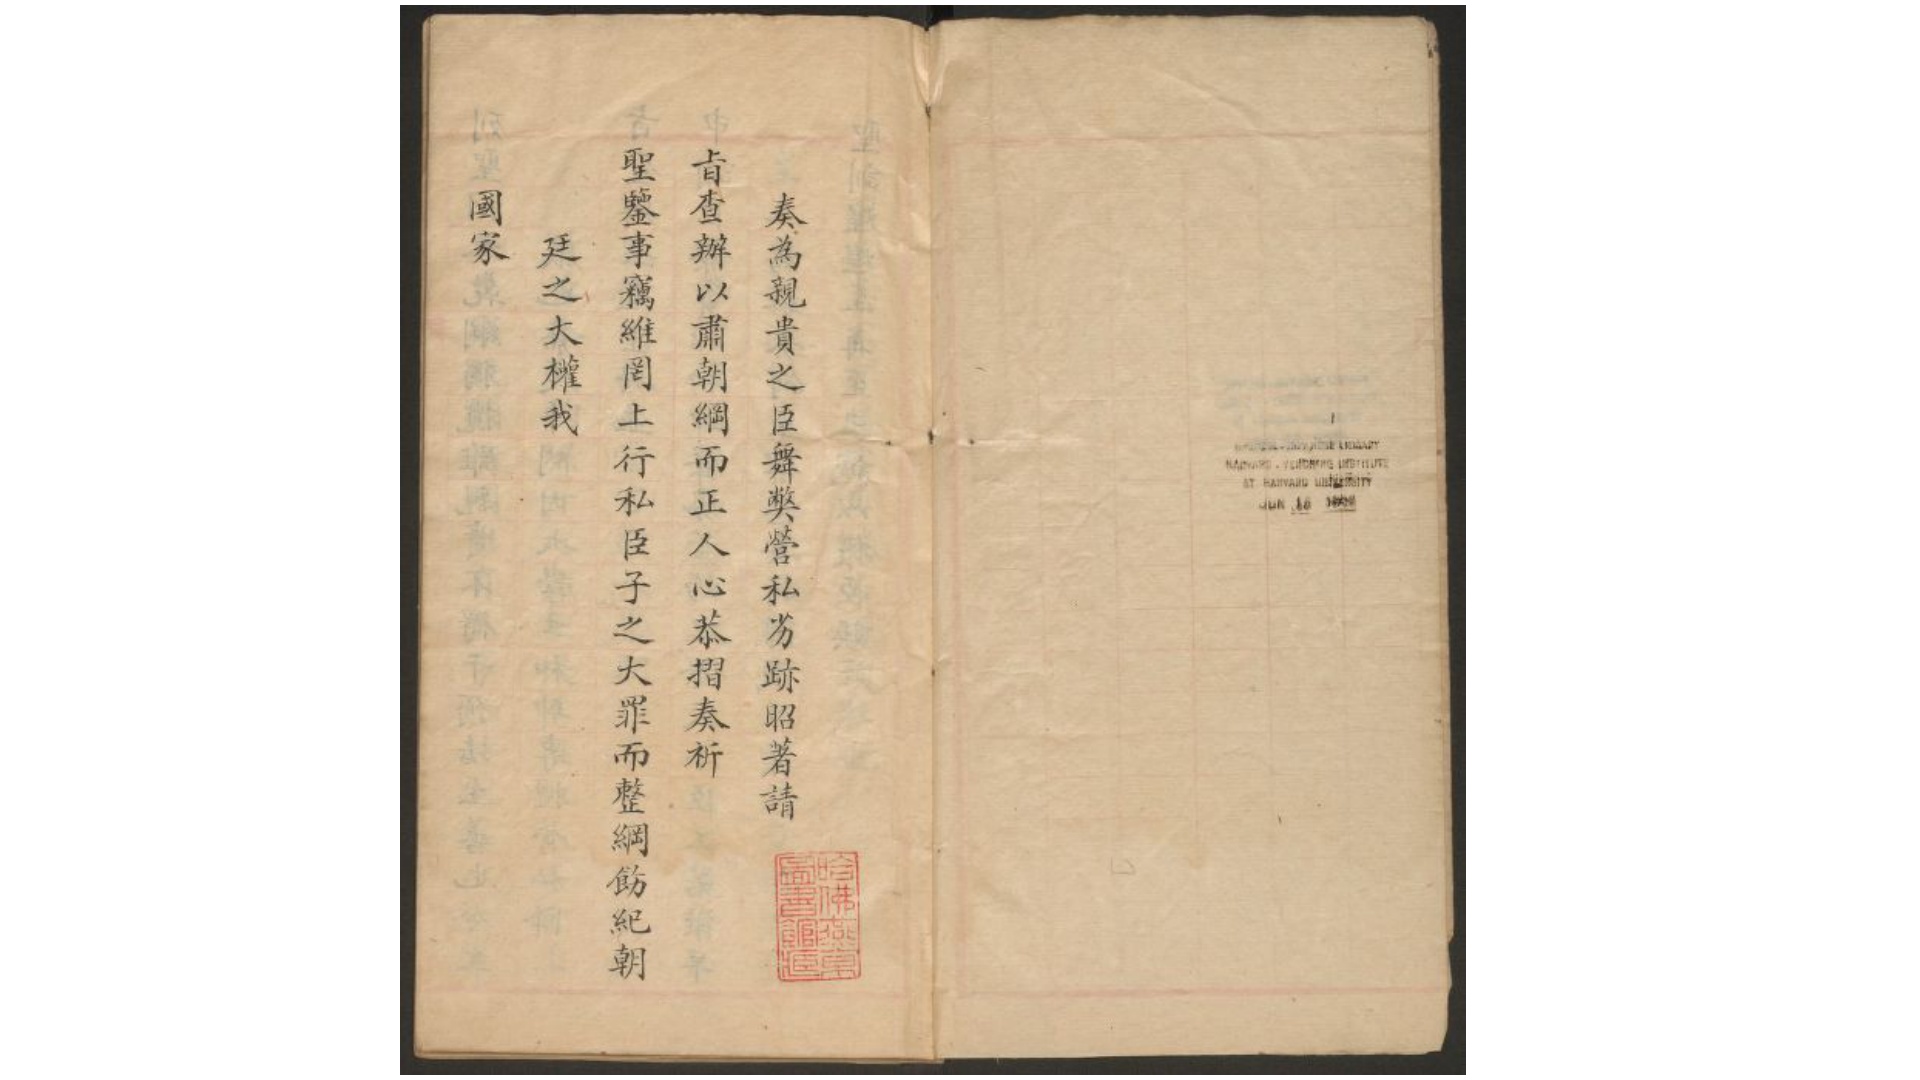 奏為親貴之臣舞獘營私劣跡昭著請
旨查辦以肅朝綱而正人心恭摺奏祈
聖鑒事竊維罔上行私臣子之大罪而整綱飭紀朝
廷之大權我
國家
哈佛燕京
圖書館藏
HARVARD-YENCHING INSTITUTE
AT HARVARD UNIVERSITY
JUN 16